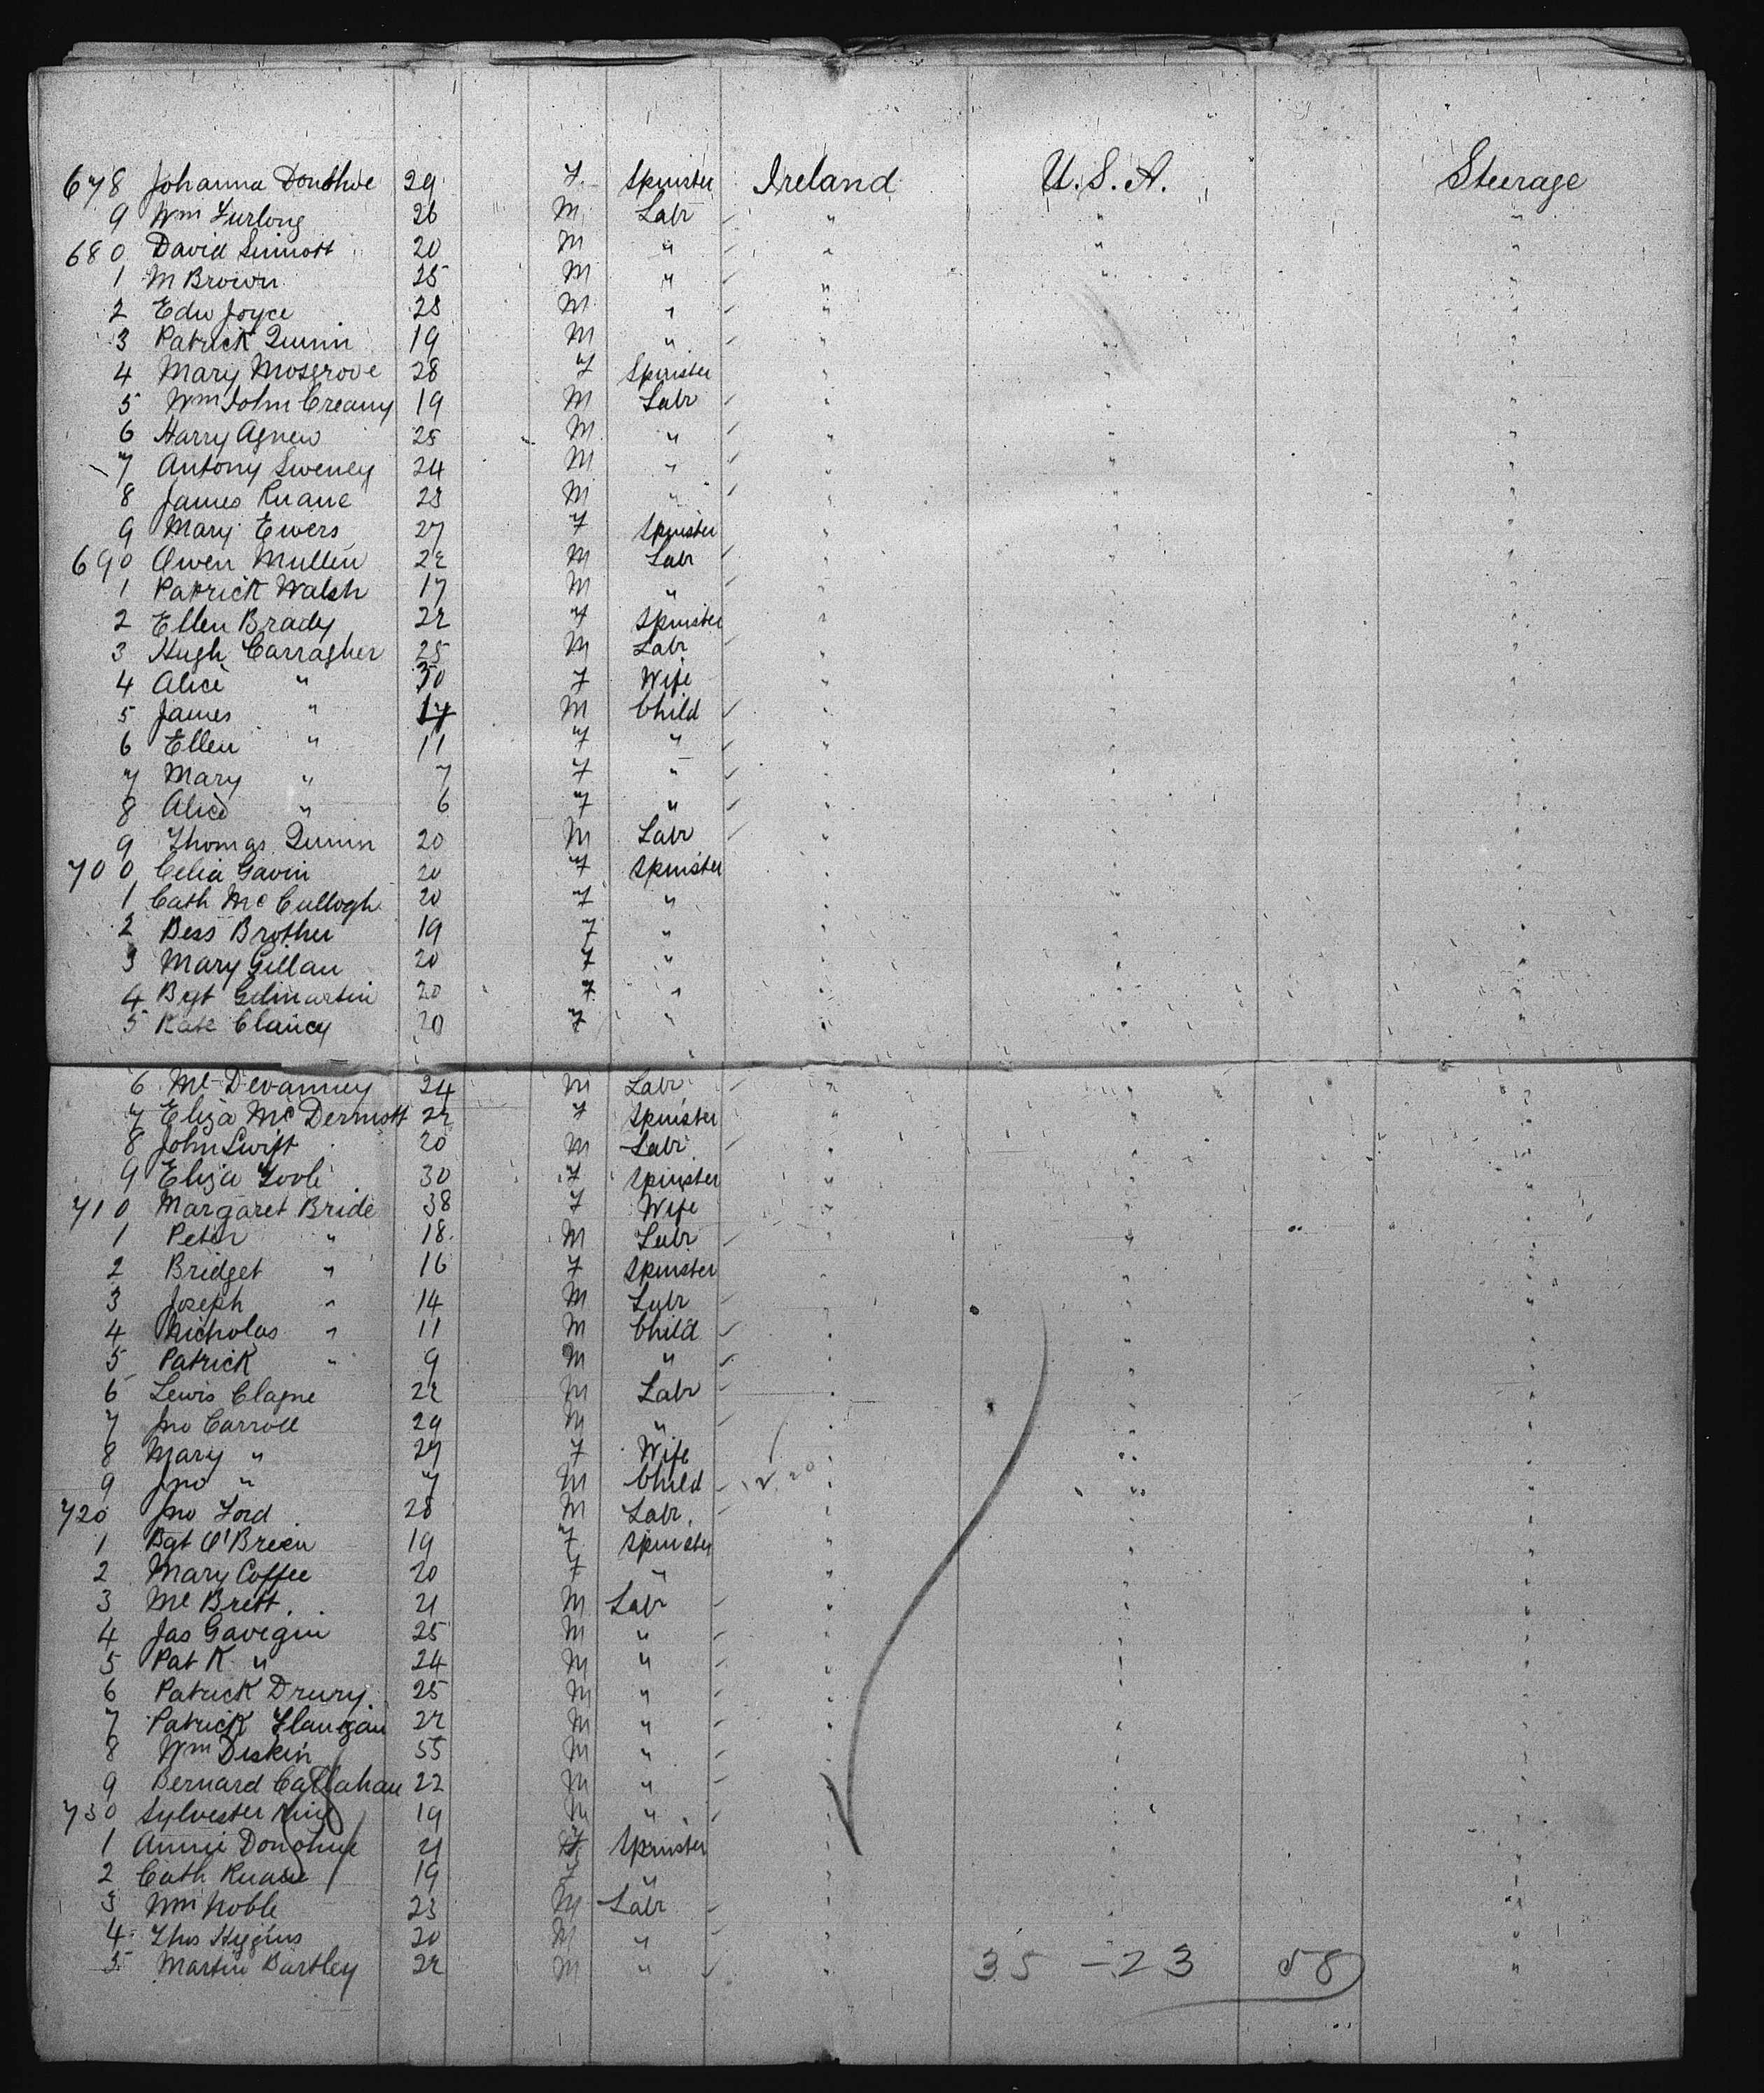 678 Johanna Donohue 29 F. Spinster Ireland U.S.A. Steerage
9 Wm Furlong 26 M Labr " " "
680 David Sinnott 20 M " " " "
1 M Brown 25 M " " " "
2 Edw Joyce 28 M " " " "
3 Patrick Quinn 19 M " " " "
4 Mary Mosgrove 28 F Spinster " " "
5 Wm John Creany 19 M Labr " " "
6 Harry Agnew 25 M " " " "
7 Antony Sweney 24 M " " " "
8 James Ruane 23 M " " " "
9 Mary Ewers 27 F Spinster " " "
690 Owen Mullen 22 M Labr " " "
1 Patrick Walsh 17 M " " " "
2 Ellen Brady 22 F Spinster " " "
3 Hugh Carragher 25 M Labr " " "
4 Alice " 30 F Wife " " "
5 James " 14 M Child " " "
6 Ellen " 11 F " " " "
7 Mary " 7 F " " " "
8 Alice " 6 F " " " "
9 Thomas Quinn 20 M Labr " " "
700 Celia Gavin 20 F Spinster " " "
1 Cath McCullogh 20 F " " " "
2 Bess Brother 19 F " " " "
3 Mary Gillan 20 F " " " "
4 Bgt Gilmartin 20 F " " " "
5 Kate Clancy 20 F " " " "
6 Ml Devanney 24 M Labr " " "
7 Eliza McDermott 22 F Spinster " " "
8 John Swift 20 M Labr " " "
9 Eliza Toole 30 F Spinster " " "
710 Margaret Bride 38 F Wife " " "
1 Peter " 18 M Labr " " "
2 Bridget " 16 F Spinster " " "
3 Joseph " 14 M Labr " " "
4 Nicholas " 11 M Child " " "
5 Patrick " 9 M " " " "
6 Lewis Clagne 22 M Labr " " "
7 Jno Carroll 29 M " " " "
8 Mary " 27 F Wife " " "
9 Jno " 7 M Child " " "
720 Jno Ford 28 M Labr. " " "
1 Bgt O'Brien 19 F Spinster " " "
2 Mary Coffee 20 F " " " "
3 Ml Brett 21 M Labr " " "
4 Jas Gavegin 25 M " " " "
5 Pat K " 24 M " " " "
6 Patrick Drury 25 M " " " "
7 Patrick Flanigan 22 M " " " "
8 Wm Diskin 55 M " " " "
9 Bernard Callahan 22 M " " " "
730 Sylvester 19 M " " " "
1 Annie Donohue 21 F Spinster " " "
2 Cath Ruane 19 F " " " "
3 Wm Noble 23 M Labr " " "
4 Thos Higgins 20 M " " " "
5 Martin Bartley 22 M " " " "
35 - 23 58